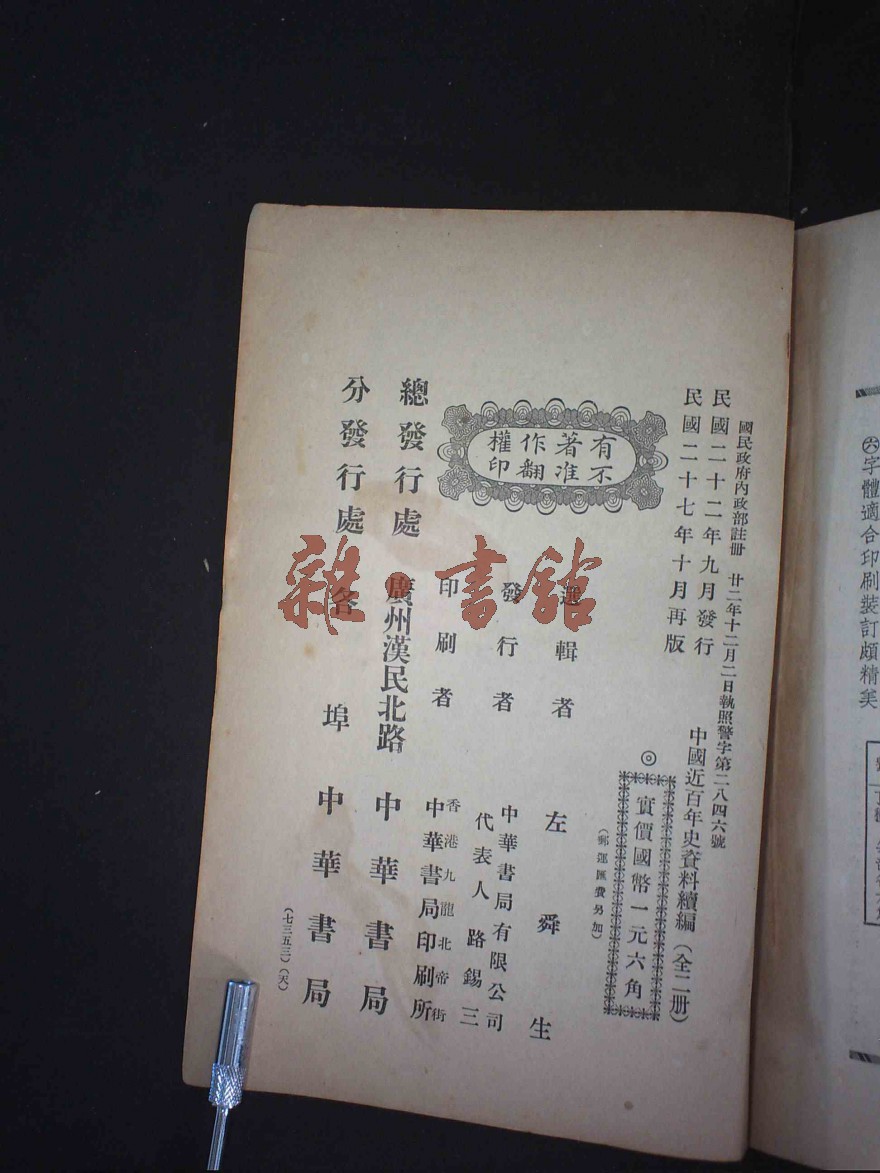 國民政府內政部註冊　廿二年十二月二日執照警字第二八四六號
民國二十二年九月發行
民國二十七年十月再版
中國近百年史資料續編（全二册）
◎實價國幣一元六角
（郵運匯費另加）
有著作權
不准翻印
選輯者　左舜生
發行者　中華書局有限公司
代表人　路錫三
印刷者　香港九龍北帝街
中華書局印刷所
總發行處　廣州漢民北路　中華書局
分發行處　各埠　中華書局
（七三五三）（天）
雜·書館
㈥字體適合印刷裝訂頗精美